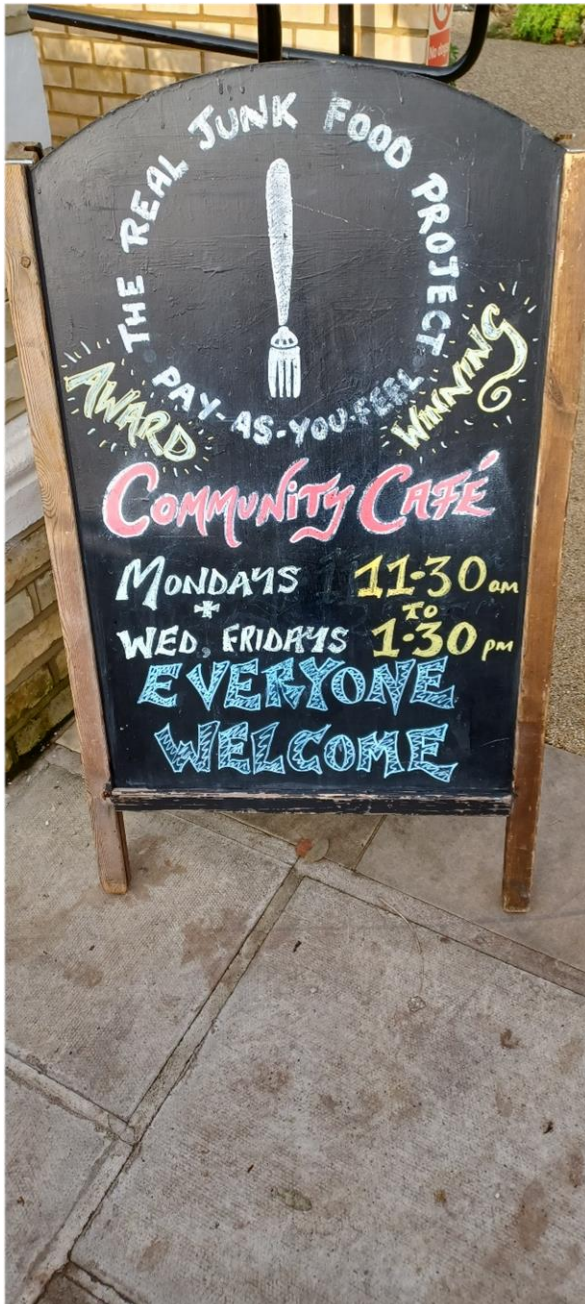 No dogs
THE REAL JUNK FOOD PROJECT
PAY-AS-YOU-FEEL
AWARD WINNING
COMMUNITY CAFÉ
MONDAYS 11-30am
+ TO
WED, FRIDAYS 1-30pm
EVERYONE
WELCOME